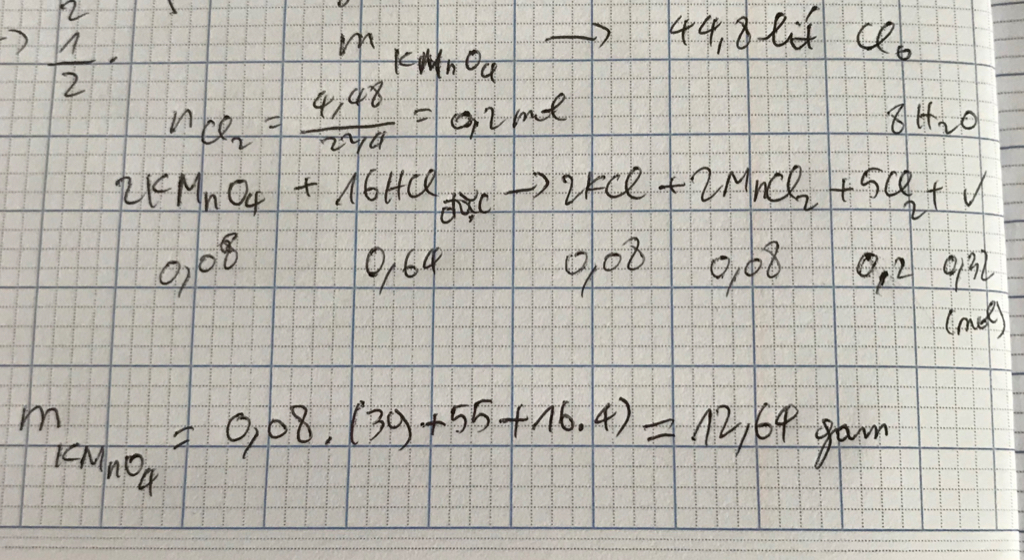 2
→ 1/2 .
m KMnO4 → 44,8 lít Cl2
nCl2 = 4,48/22,4 = 0,2 mol
8H2O
2KMnO4 + 16HCl đặc → 2KCl + 2MnCl2 + 5Cl2 +
0,08 0,64 0,08 0,08 0,2 0,32
(mol)
mKMnO4 = 0,08. (39+55+16.4) = 12,64 gam